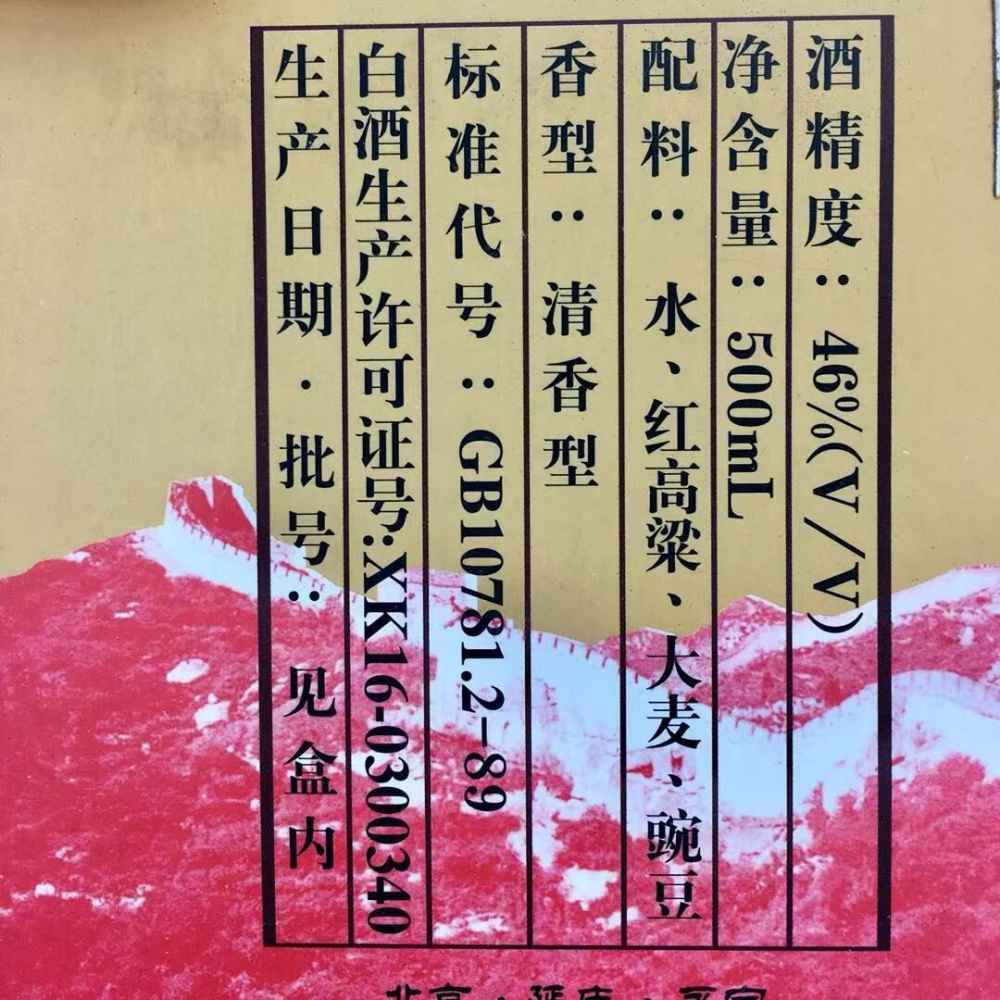 酒精度：46%(V/V)
净含量：500mL
配料：水、红高粱、大麦、豌豆
香型：清香型
标准代号：GB10781.2-89
白酒生产许可证号:XK16-0300340
生产日期·批号：见盒内